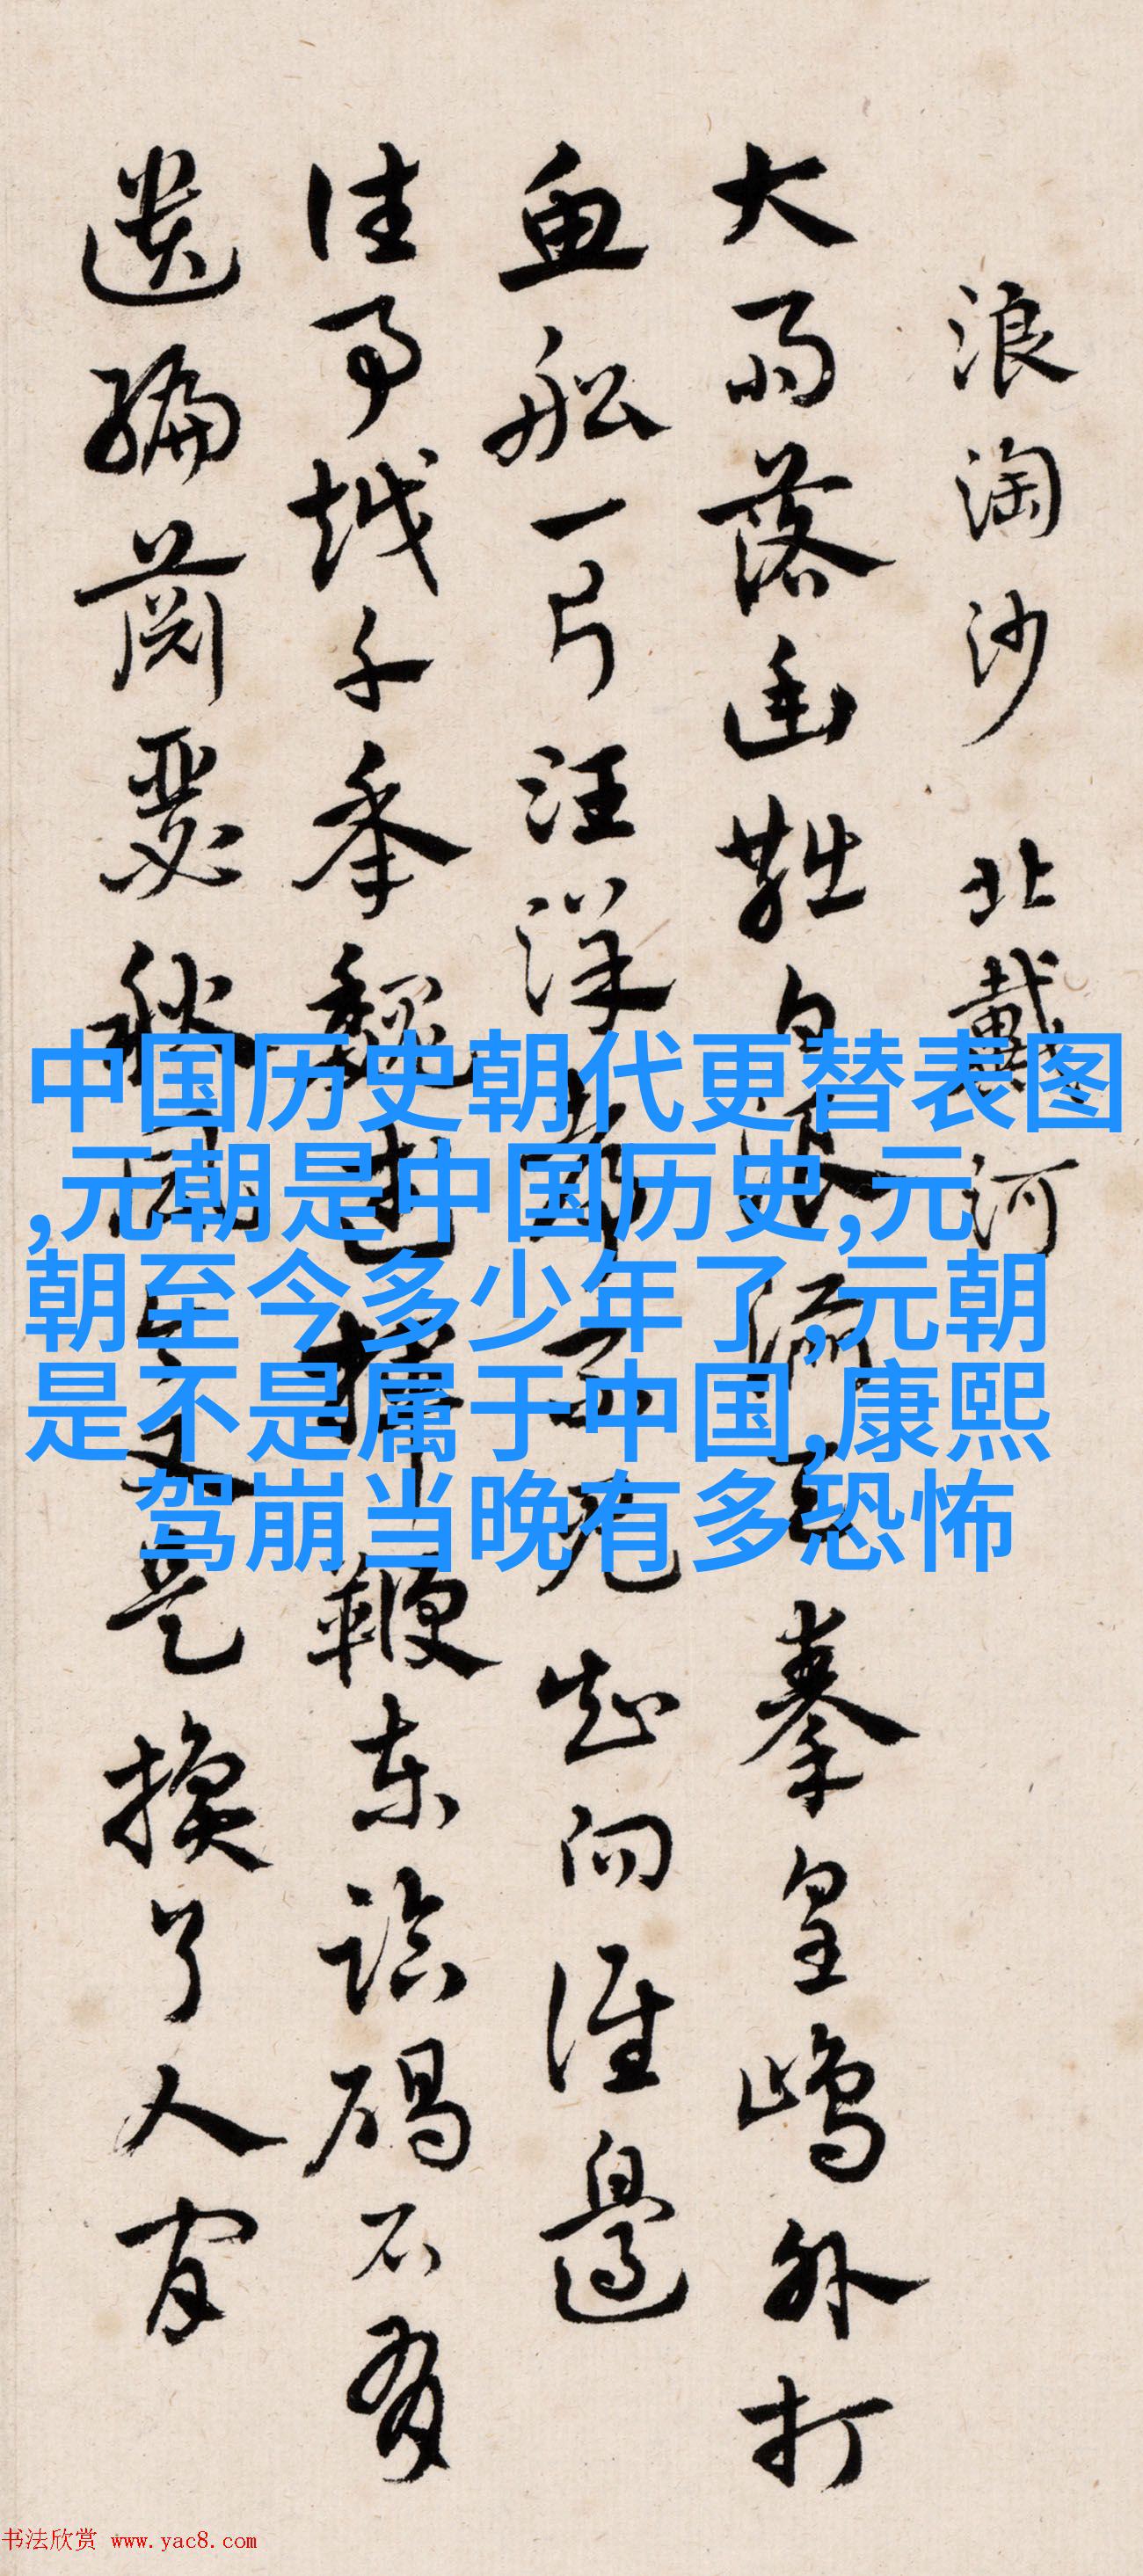 浪淘沙 北戴河
大雨落幽燕白浪滔天秦皇島外打
魚船一片汪洋都不見知向誰邊
往事越千年魏武揮鞭東臨碣石有
遺編蕭瑟秋風今又是換了人間
中国历史朝代更替表图
,元朝是中国历史,元
朝至今多少年了,元朝
是不是属于中国,康熙
驾崩当晚有多恐怖
书法欣赏 www.yac8.com